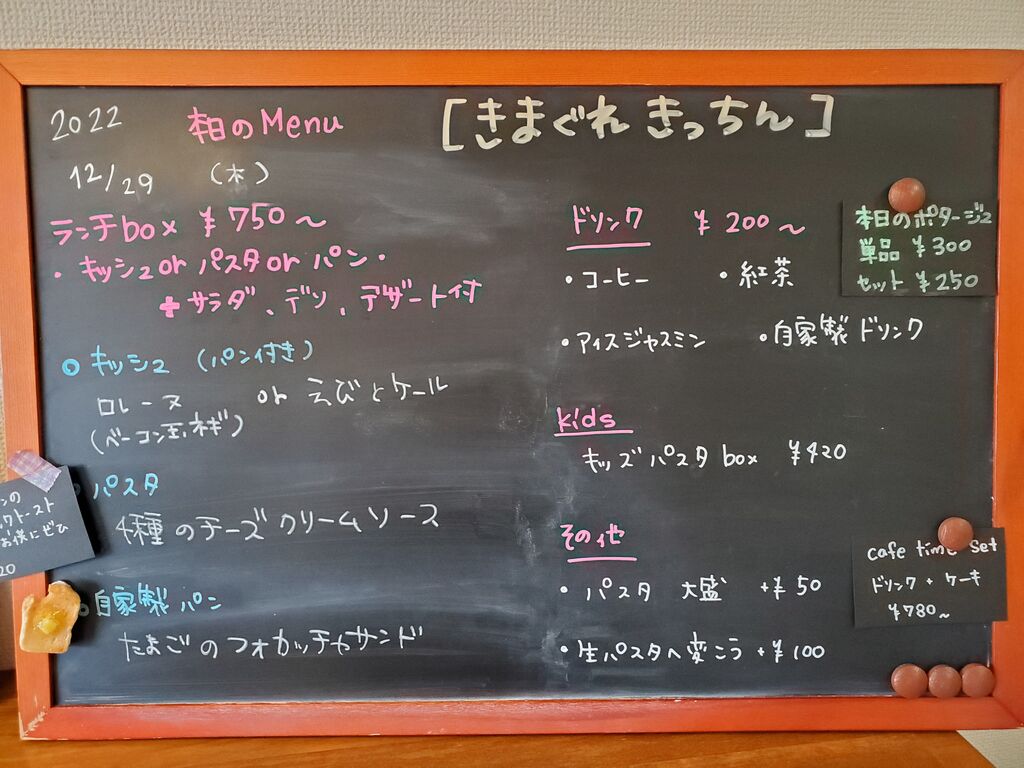 2022
12/29 (木)
本日のMenu
[きまぐれ きっちん]
ランチbox ¥750～
・キッシュ or パスタ or パン・
+サラダ、デリ、デザート付
キッシュ (パン付き)
ロレーヌ or えびとケール
(ベーコン玉ネギ)
パスタ
4種のチーズクリームソース
自家製パン
たまごのフォカッチャサンド
ドリンク ¥200～
・コーヒー ・紅茶
・アイスジャスミン ・自家製ドリンク
kids
キッズパスタbox ¥420
その他
・パスタ 大盛 +¥50
・生パスタへ変こう +¥100
本日のポタージュ
単品 ¥300
セット ¥250
cafe time set
ドリンク + ケーキ
¥780～
クトースト
お供にぜひ
20